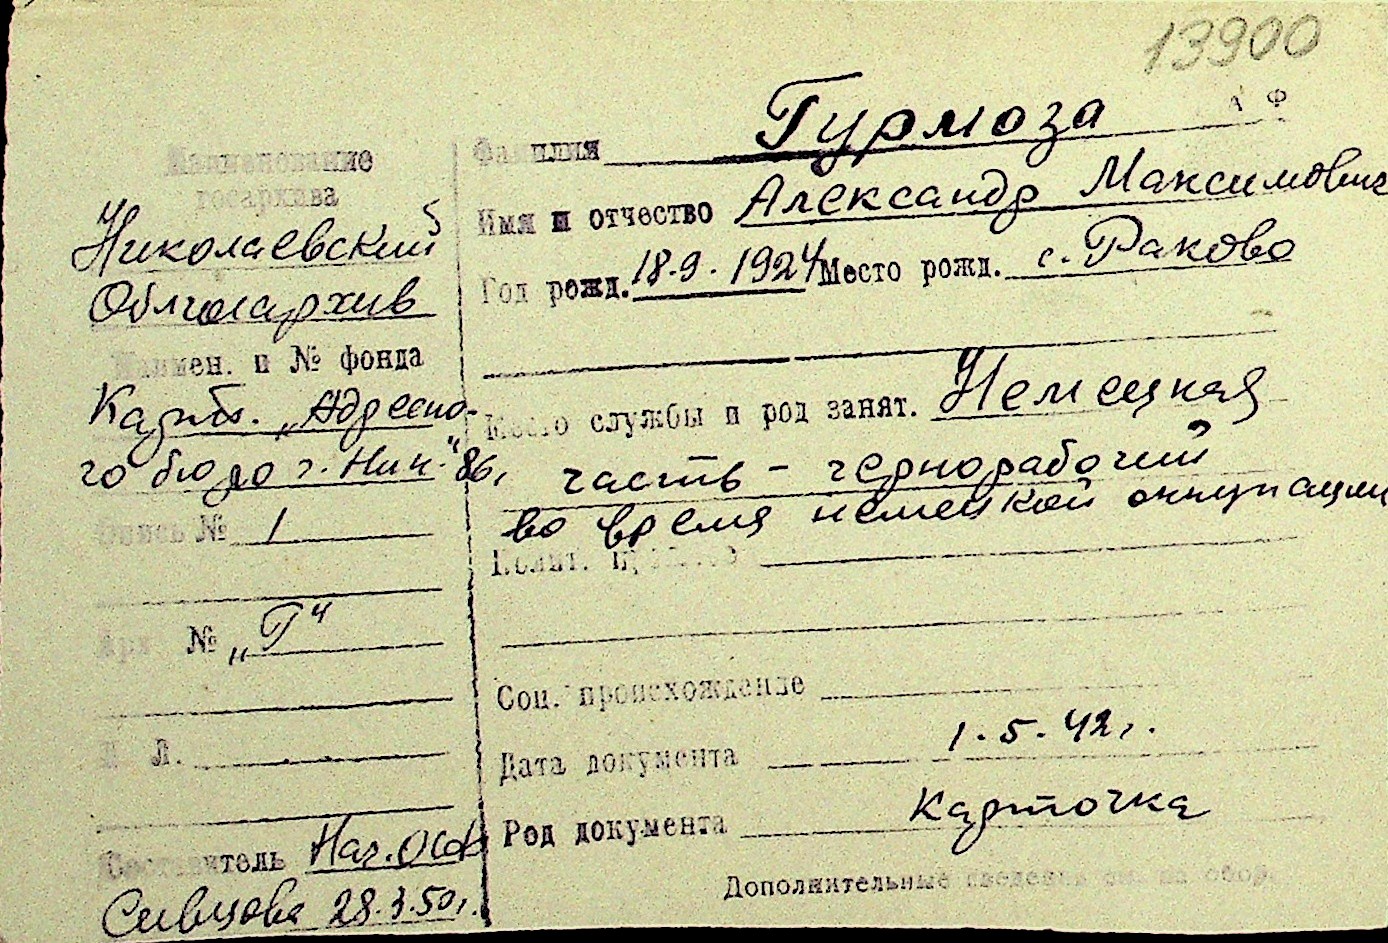 13900
А Ф
Наименование
госархива
Николаевский
Облгосархив
Наимен. и № фонда
Картот. „Адресно-
го бюро г. Ник."
Опись № 1
№ „Г"
Л.
Составитель Нач. ОСФ
Сивцова 28.3.50г.
Фамилия Гурмоза
Имя и отчество Александр Максимович
Год рожд. 18.9.1924 Место рожд. с. Раково
Место службы и род занят. Немецкая
часть - чернорабочий
во время немецкой оккупации
Полит.
Соц. происхождение
Дата документа 1.5.42г.
Род документа Карточка
Дополнительные сведения см. на обор.